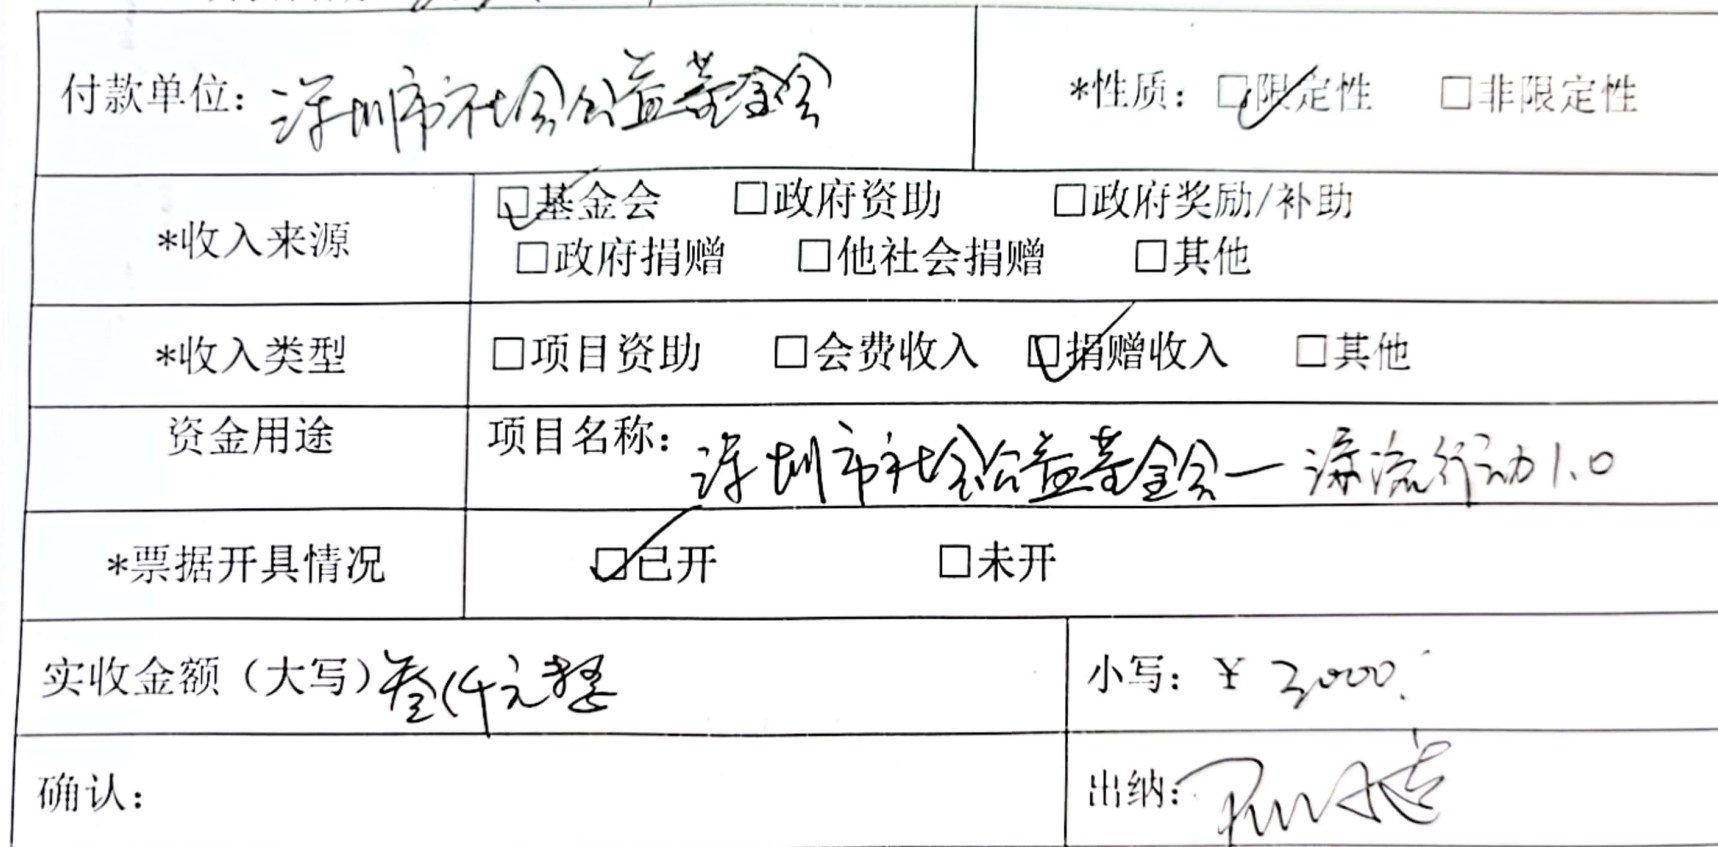 付款单位：深圳市社会公益基金会 *性质：☑限定性 □非限定性
☑基金会 □政府资助 □政府奖励/补助
*收入来源
□政府捐赠 □他社会捐赠 □其他
*收入类型 □项目资助 □会费收入 ☑捐赠收入 □其他
资金用途 项目名称：深圳市社会公益基金会—流行动1.0
*票据开具情况 ☑已开 □未开
实收金额（大写）叁仟元整 小写：¥ 3000.
确认： 出纳：